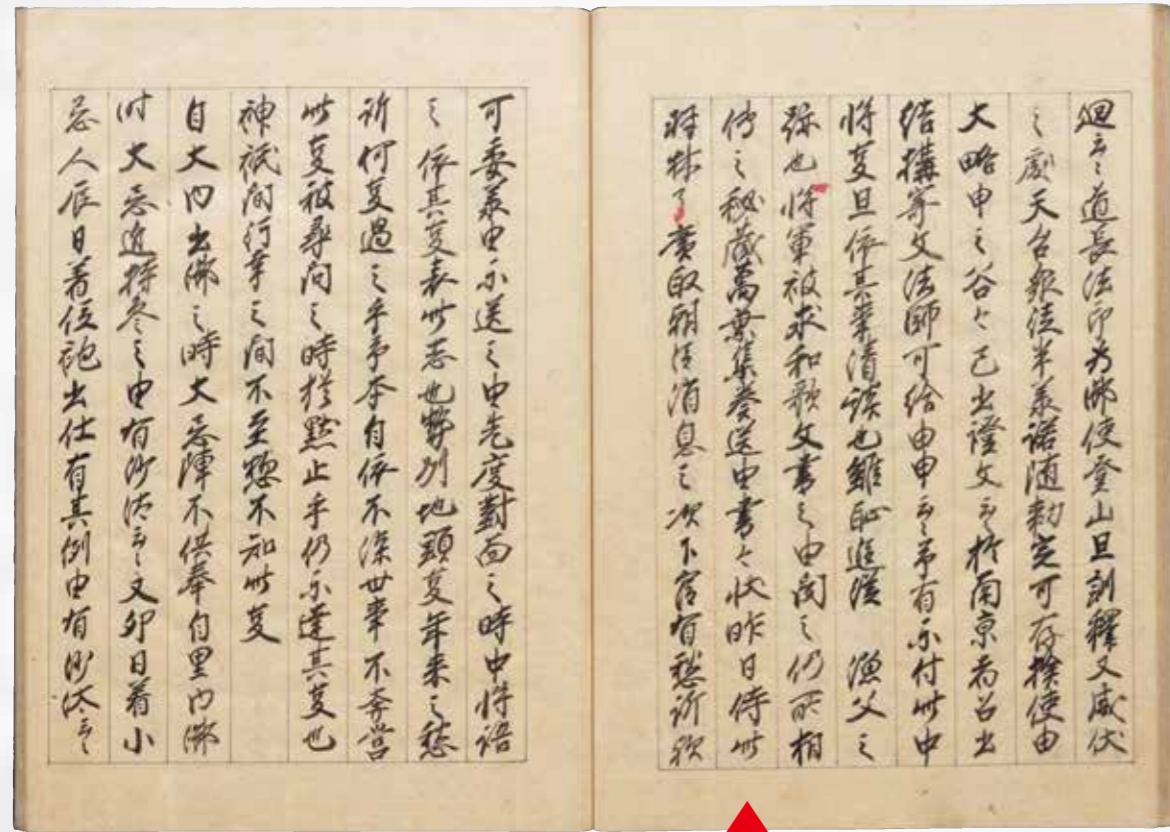 廻云々道長法印為御使登山且訓釋又威伏
之劇天台衆徒半承諾随勅定可存撿使由
大略申之谷々已出證文云々於南京者召出
結構等文法師可給由申云々有示付此中
将事且依其業清談也雖恥進 漁父之
跡也将軍被求和歌文書之由聞之仍所相
傳之秘蔵萬葉集奉送由書々状昨日付此
羽林了廣取雅経消息之次下官有愁訴歟
可委承由示送之由先度對面之時中将語
之依其事表此志也勢州地頭事年来之愁
訴何事過之乎予本自依不染世事不奔営
此事被尋問之時於黙止乎仍示達其事也
神祇間行幸之間不至愁不知此事
自大内出御之時大忌陣不供奉自里内御
時大忌近将参之由有沙汰云々又卯日着小
忌人辰日着位袍出仕有其例由有沙汰云々